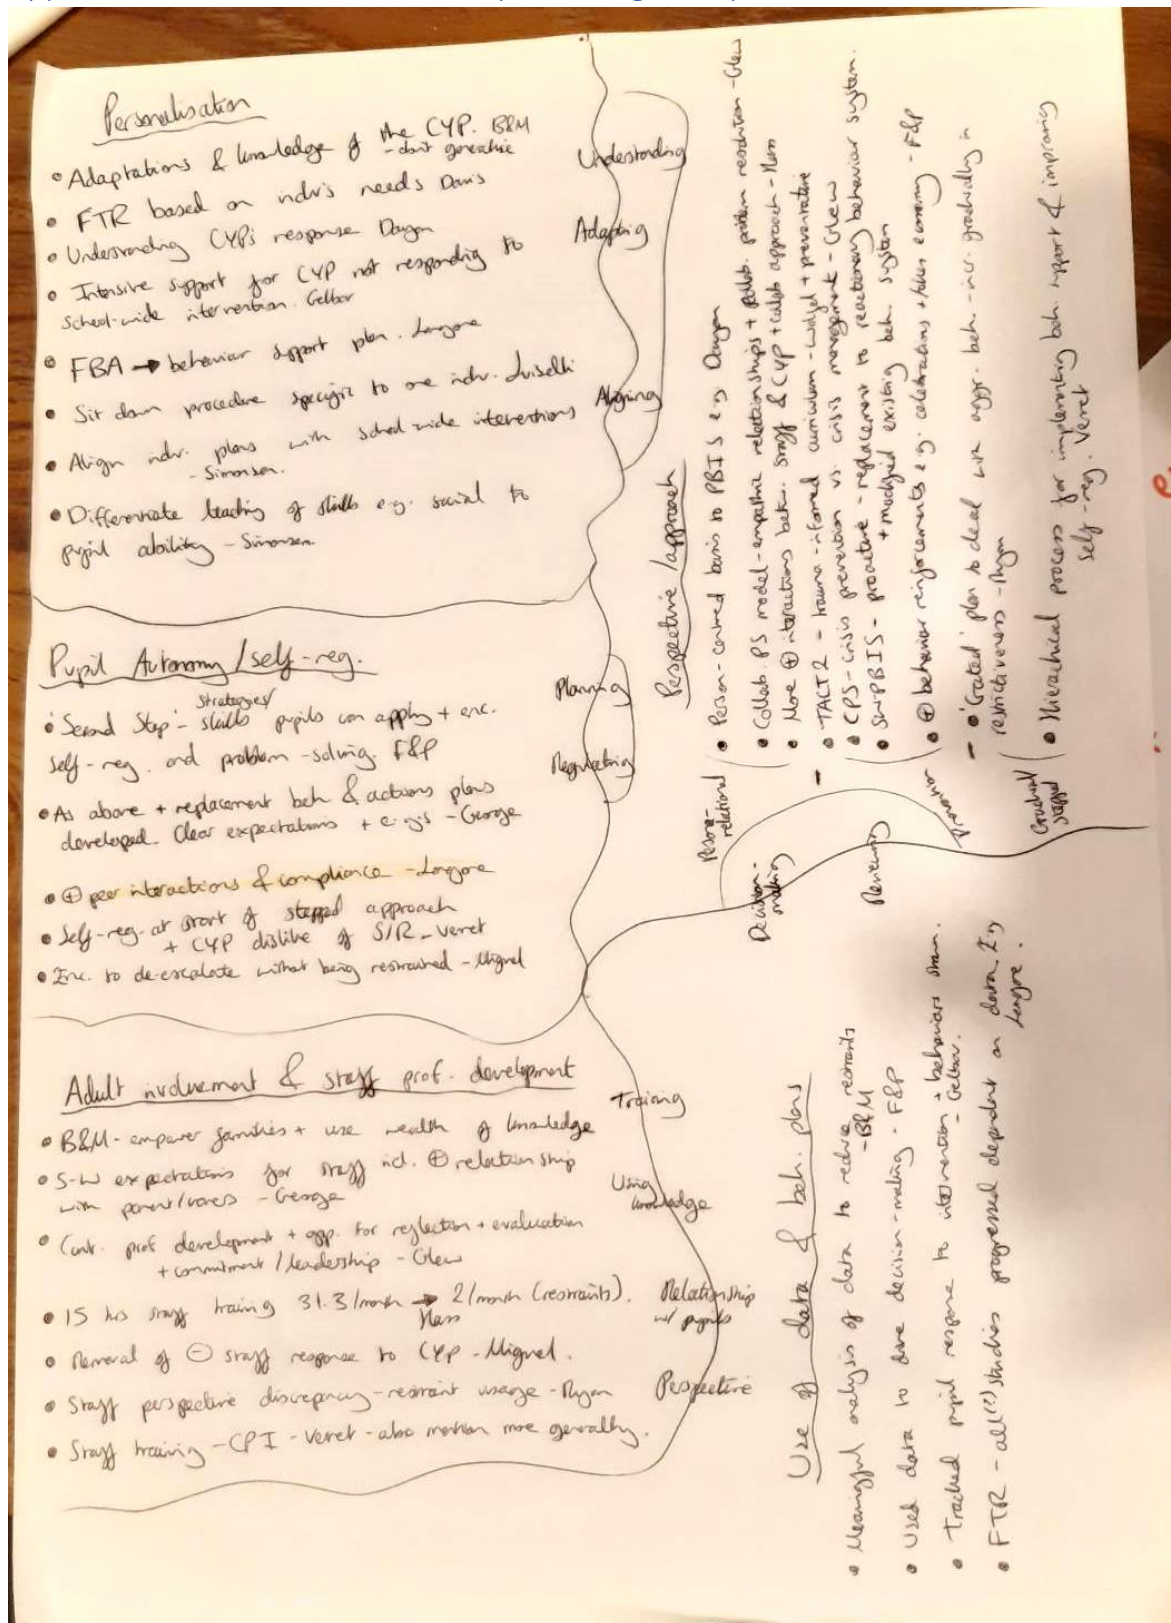 Personalisation
• Adaptations & knowledge of the CYP. B&M
- don't generalise
• FTR based on indv's needs Davis
• Understanding CYPs response Dayan
• Intensive support for CYP not responding to
school-wide intervention. Gelbar
• FBA → behavior support plan. Langone
• Sit down procedure specific to one indv. Luiselli
• Align indv. plans with school wide interventions
- Simonsen.
• Differentiate teaching of skills e.g. social to
pupil ability - Simonsen.
Understanding
Adapting
Aligning
Pupil Autonomy/self-reg.
• 'Second Step' - strategies/skills pupils can apply + enc.
self-reg. and problem-solving. F&P
• As above + replacement beh & actions plans
developed. Clear expectations + e.g.s - George
• ⊕ peer interactions & compliance - Langone
• Self-reg. at start of stepped approach
+ CYP dislike of S/R - Verret
• Enc. to de-escalate without being restrained - Miguel
Planning
Regulating
Adult involvement & staff prof. development
• B&M - empower families + use wealth of knowledge
• S-W expectations for staff incl. ⊕ relationship
with parent/carers - George
• Cont. prof development + opp. for reflection + evaluation
+ commitment/leadership - Glew
• 15 hrs staff training 31.3/month → 2/month (restraints).
Mass
• Removal of ⊖ staff response to CYP - Miguel.
• Staff perspective discrepancy - restraint usage - Ryan
• Staff training - CPI - Verret - also mention more generally.
Training
Using knowledge
Relationship
w/ pupils
Perspective
Perspective/approach
• Person-centred basis to PBIS e.g. Dayan
• Collab. PS model - empathic relationships + collab. problem resolution - Glew
• More ⊕ interactions betw. staff & CYP + collab approach - Mass
• TACT2 - trauma-informed curriculum - + preventative
• CPS - crisis prevention vs. crisis management - Glew
• SW-PBIS - proactive - replacement to reactionary behaviour system.
+ modified existing beh. system
• ⊕ behavior reinforcements e.g. celebrations + token economy - F&P
• 'Graded' plan to deal with aggr. beh. - incr. gradually in
restrictiveness - Ryan
• Hierarchical process for implementing beh. support & improving
self-reg. Verret
Person-relational
Prevention
Gradual/
stepped
Decision-
making
Reviewing
Use of data & beh. plans
• Meaningful analysis of data to reduce restraints
- B&M
• Used data to drive decision-making - F&P
• Tracked pupil response to intervention + behaviors shown.
- Gelbar.
• FTR - all(?) studies progressed dependent on data. E.g.
Langone.